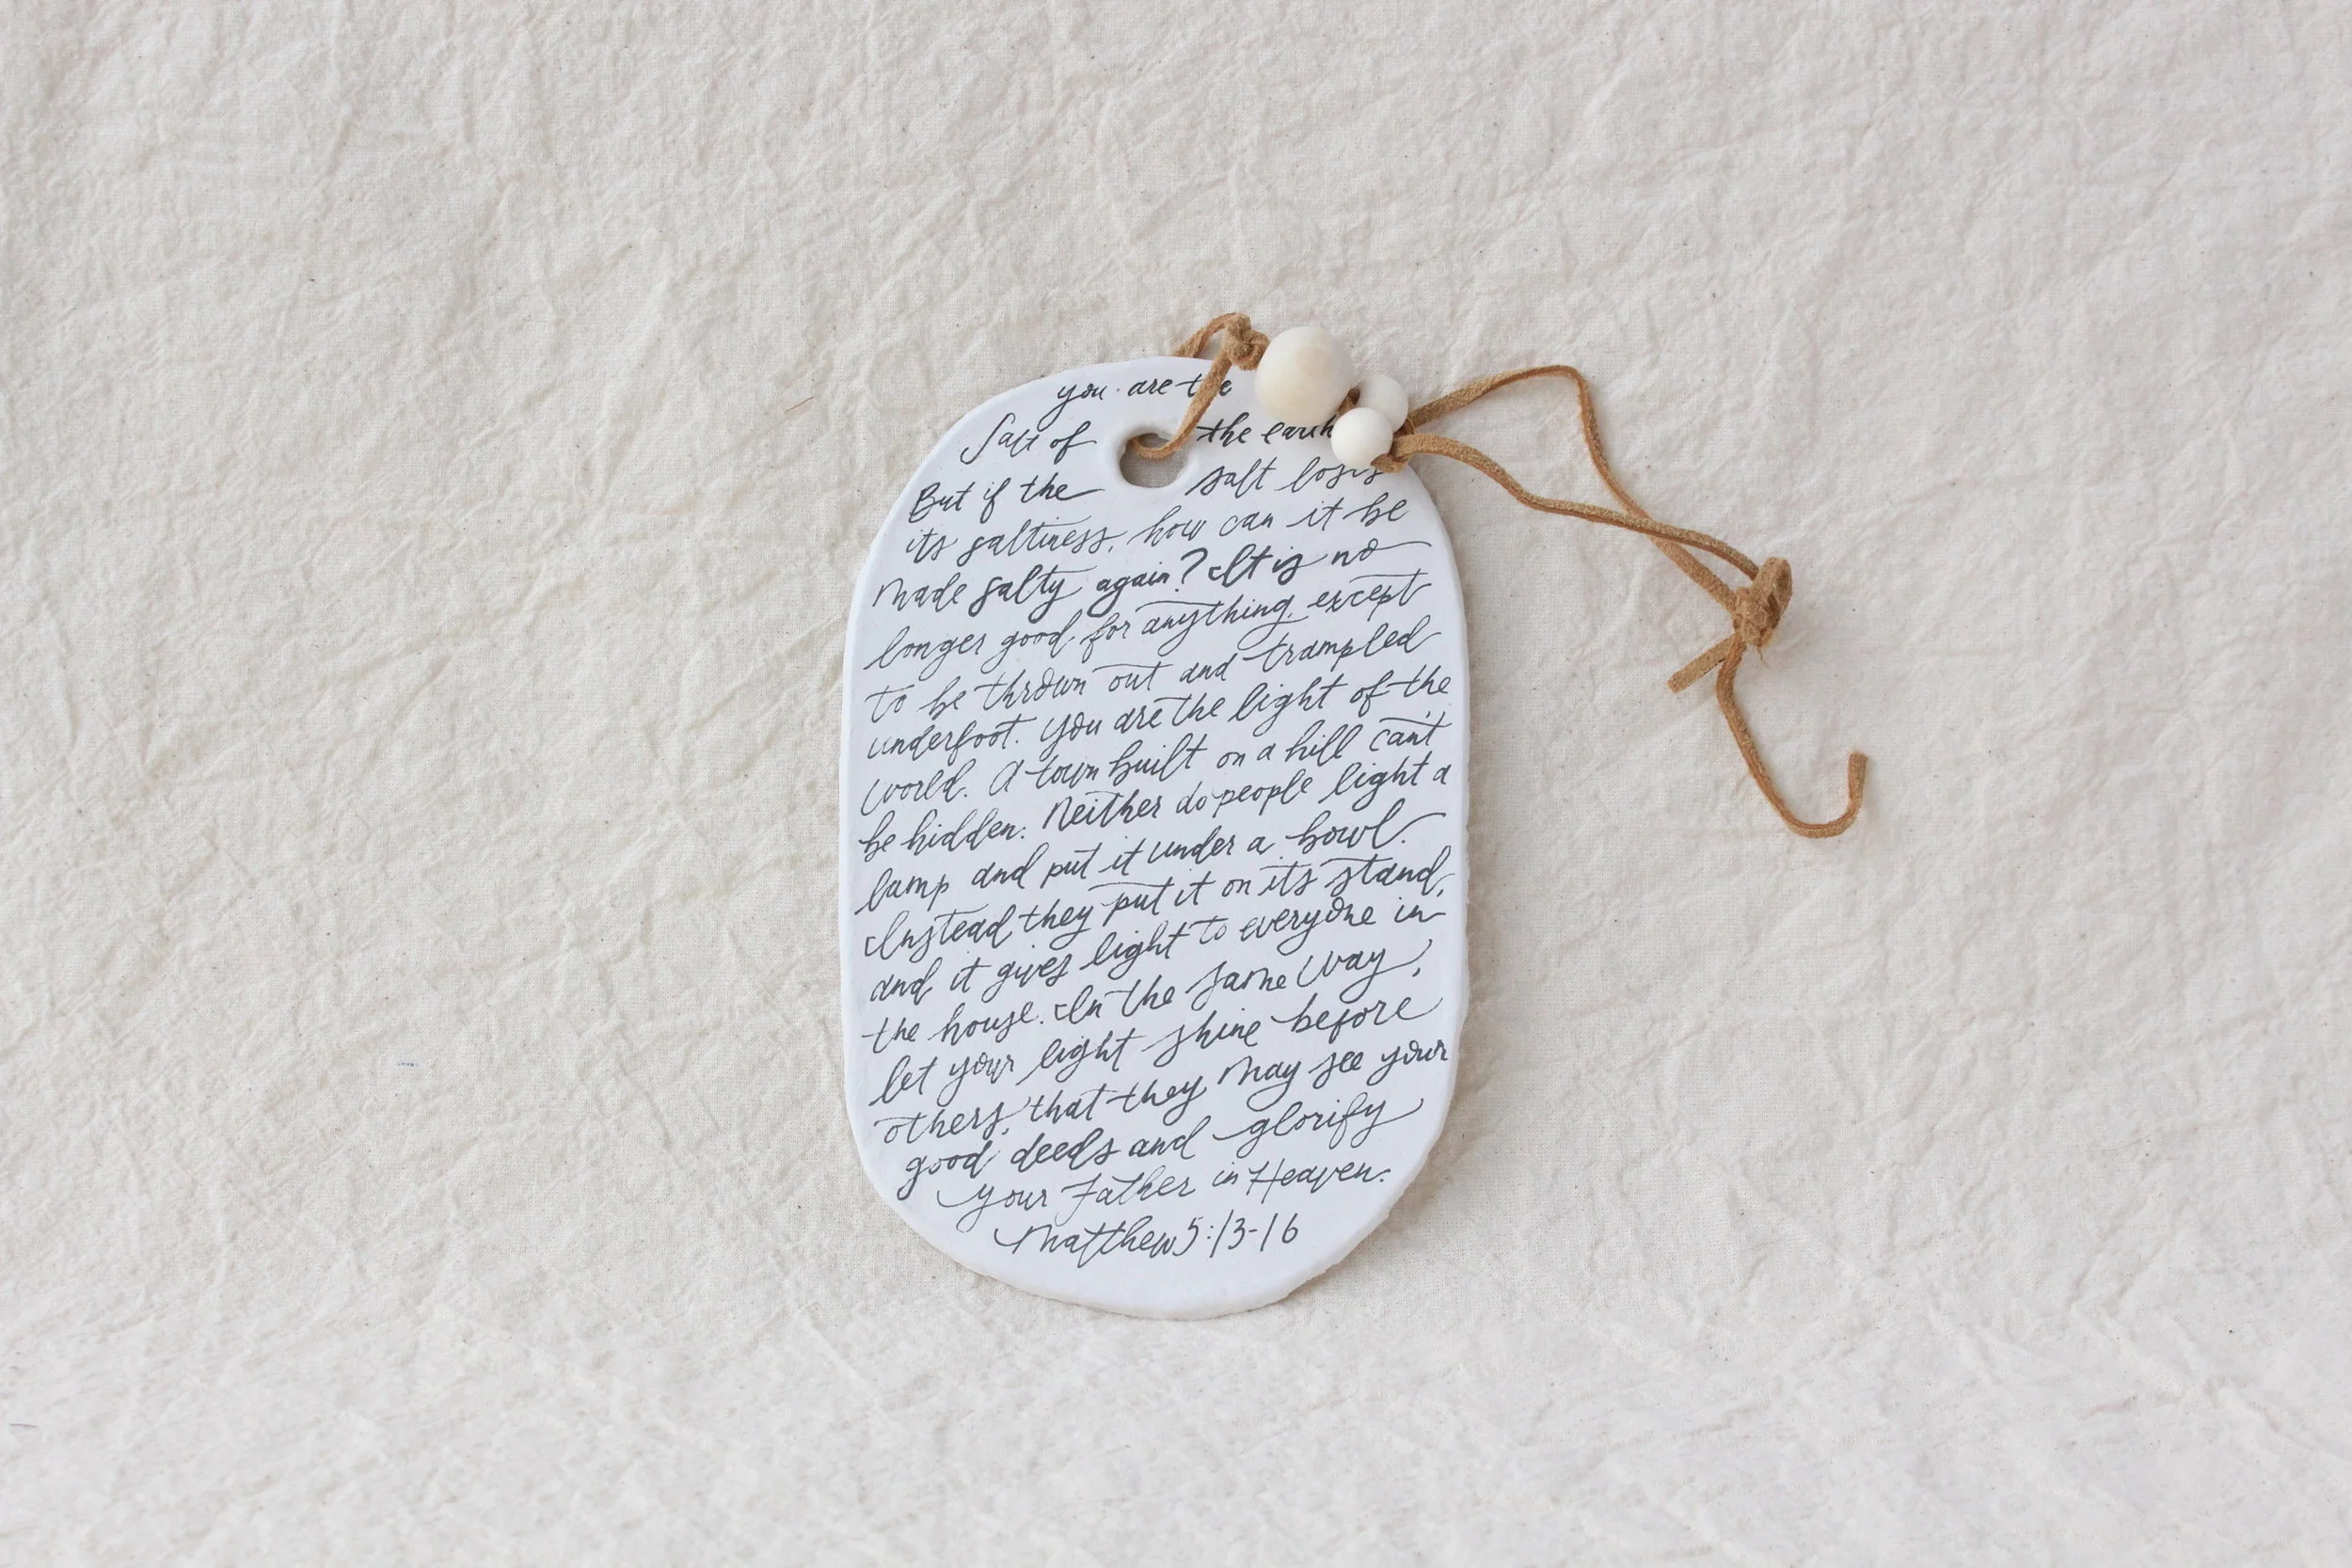 you are the
Salt of the earth
But if the salt loses
its saltiness, how can it be
made salty again? It is no
longer good for anything except
to be thrown out and trampled
underfoot. You are the light of the
world. A town built on a hill can't
be hidden. Neither do people light a
lamp and put it under a bowl.
Instead they put it on its stand,
and it gives light to everyone in
the house. In the same way,
let your light shine before
others, that they may see your
good deeds and glorify
your Father in Heaven.
Matthew 5:13-16